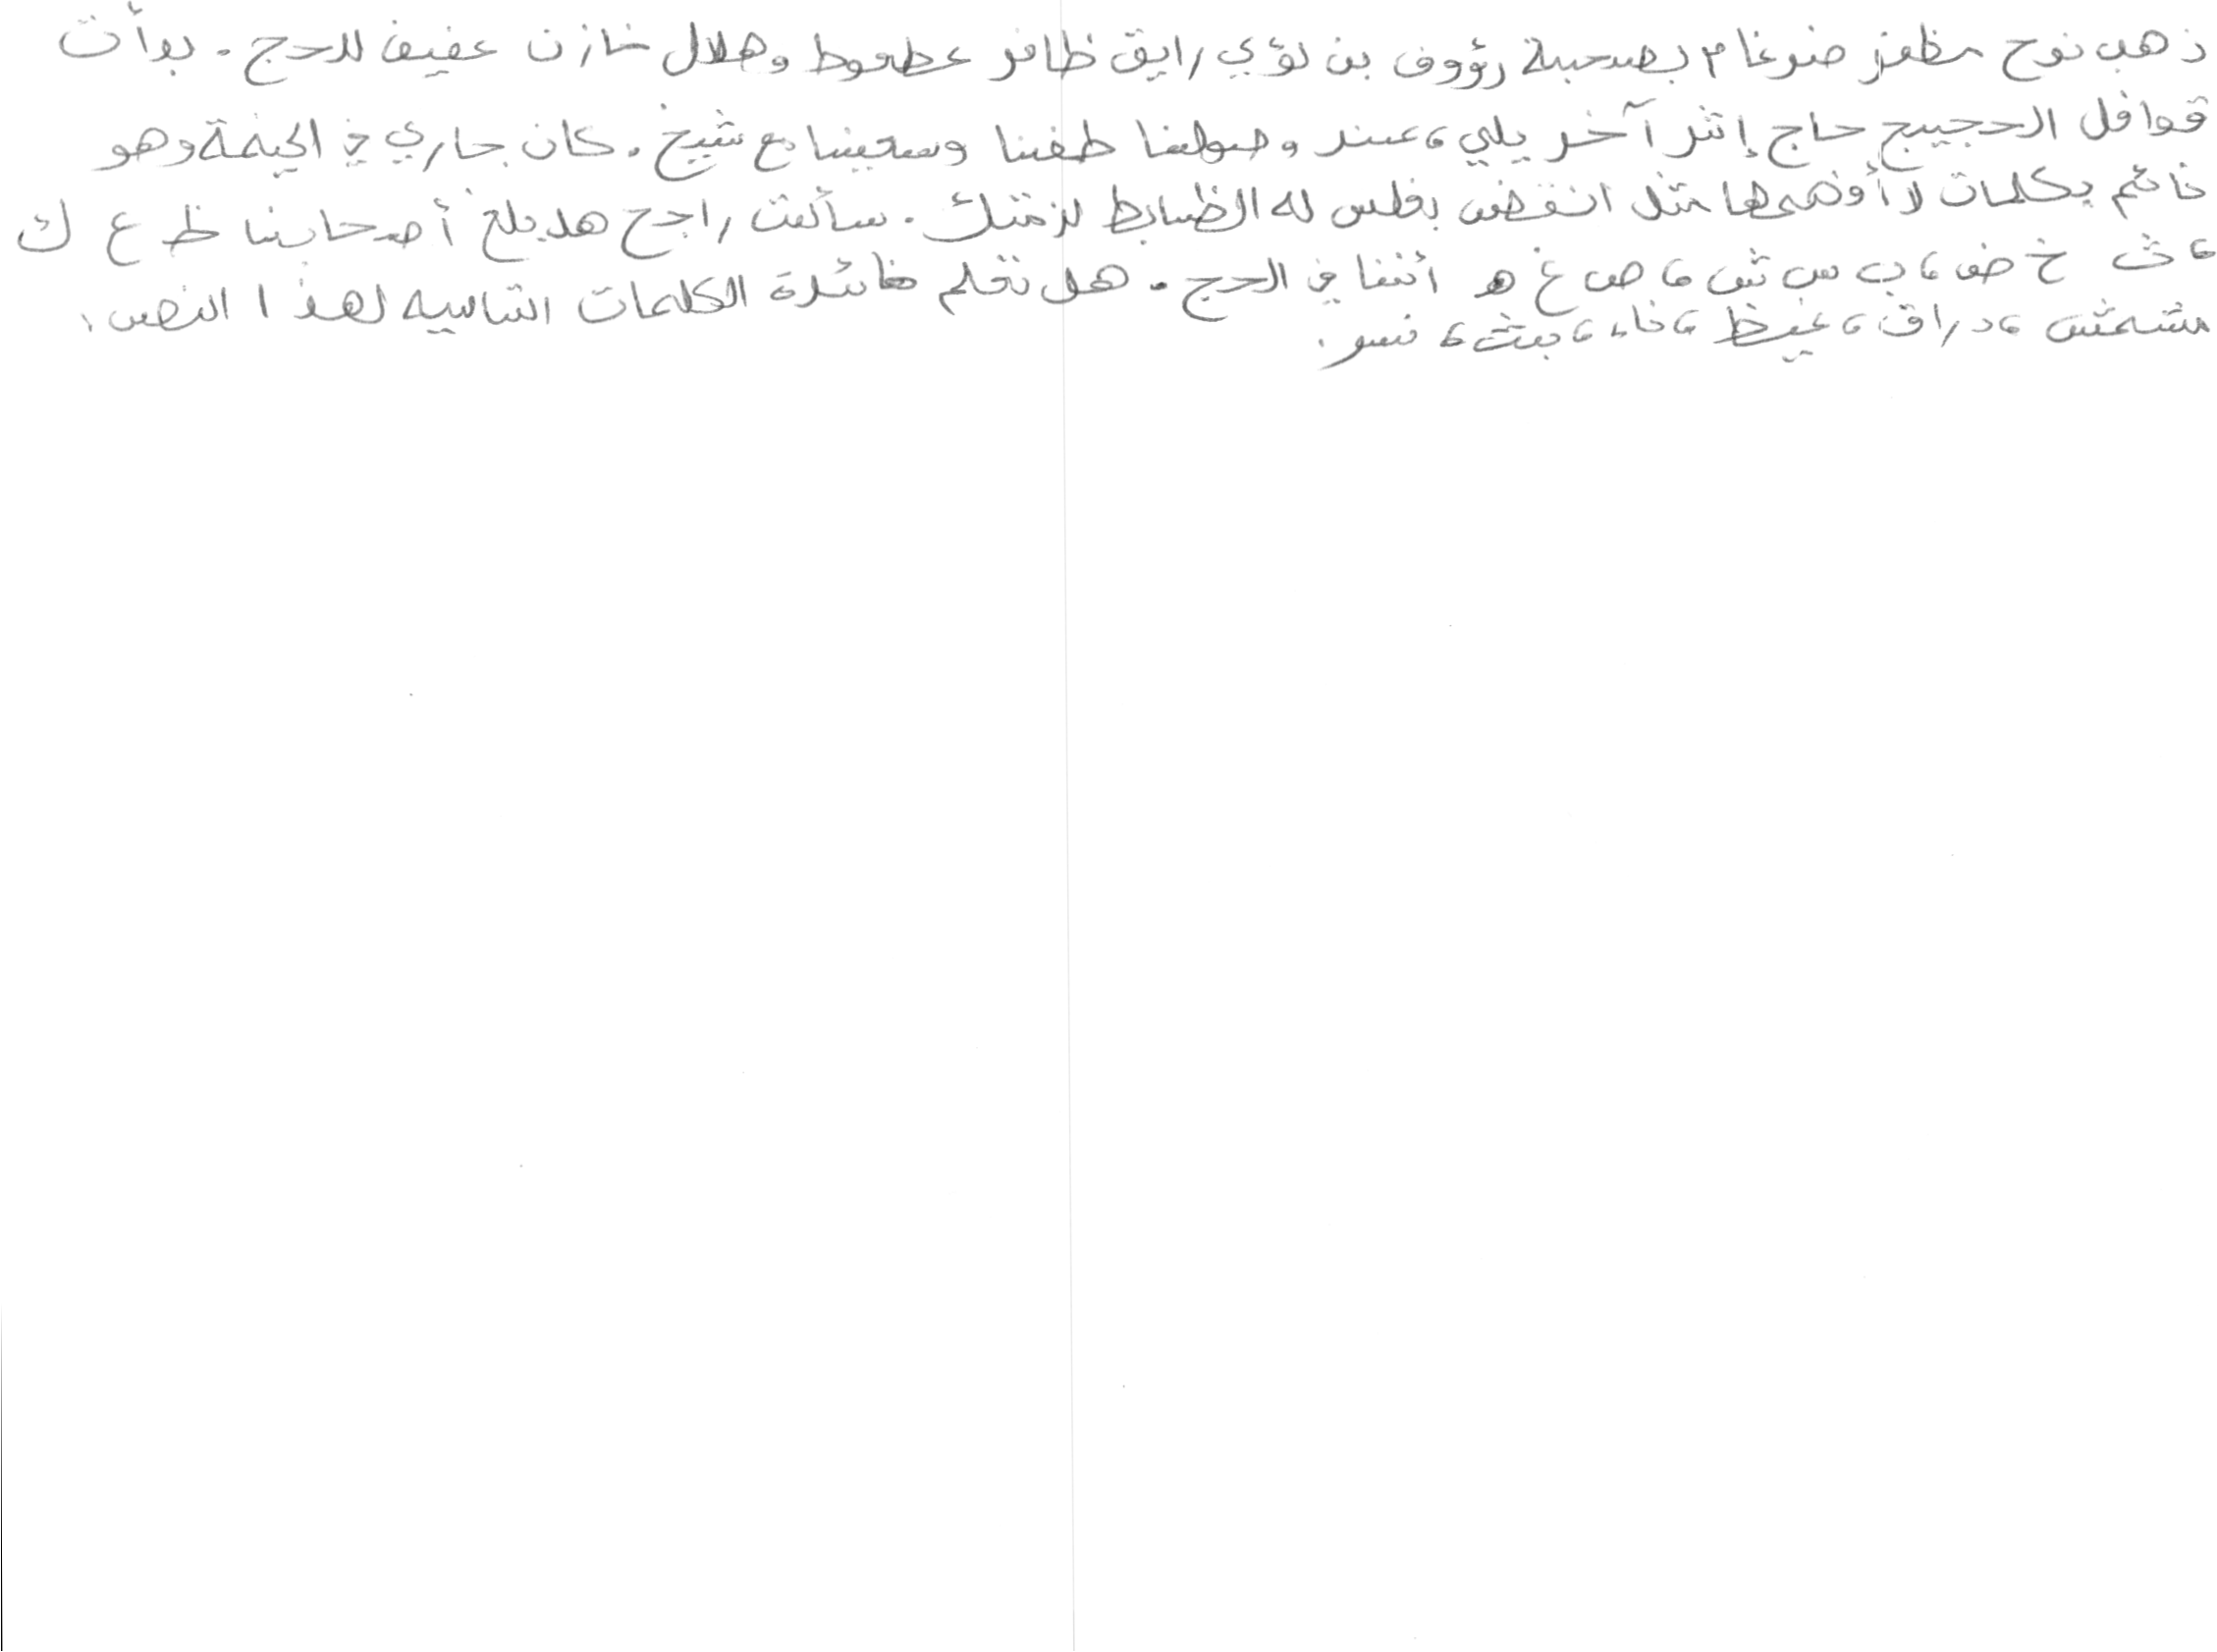 ذهب نوح مظفر ضرغام بصحبة رؤوف بن لؤي رايق ظافر عطعوط وهلال خازن عفيف للحج . بدأت
قوافل الحجيج حاج إثر آخر يلي ، عند وصولنا طفنا وسعينا مع شيخ . كان جاري في الخيمة وهو
نائم بكلمات لا أفهمها مثل انقض بفلس له الضابط لزمتك . سألت راجح هل بلغ أصحابنا ظ ع ك
، ث خ ض ، ب س ش ، ص غ هـ أننا في الحج . هل تعلم فائدة الكلمات التالية لهذا النص :
مشمش ، دراق ، غيظ ، ناء ، بث ، نسر .